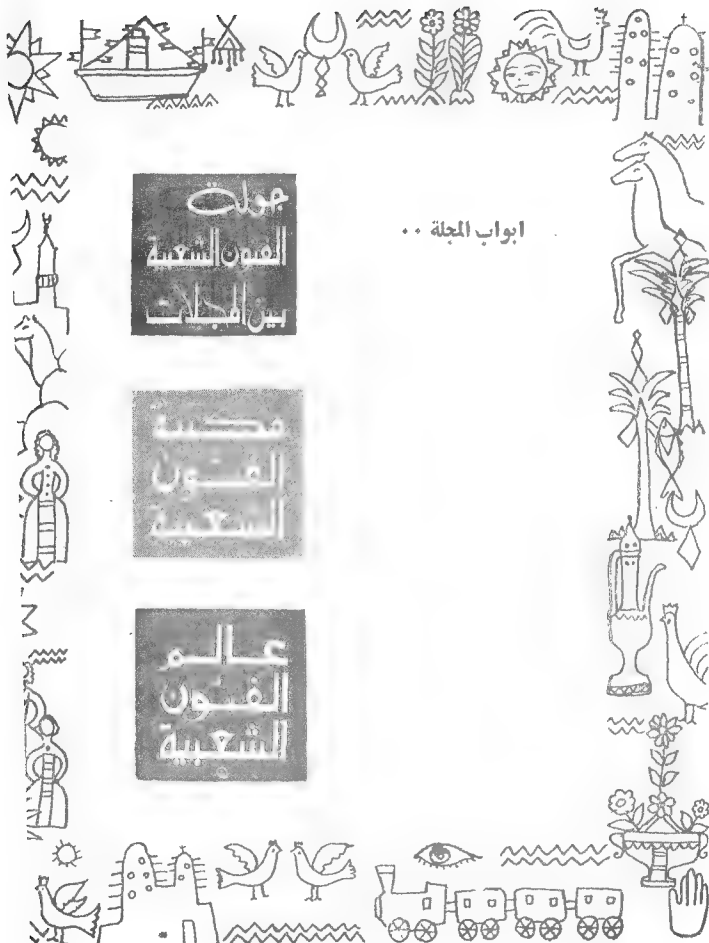 ابواب المجلة ٠٠
جولة
الفنون الشعبية
بين المجلات
مكتبة
الفنون
الشعبية
عالم
الفنون
الشعبية